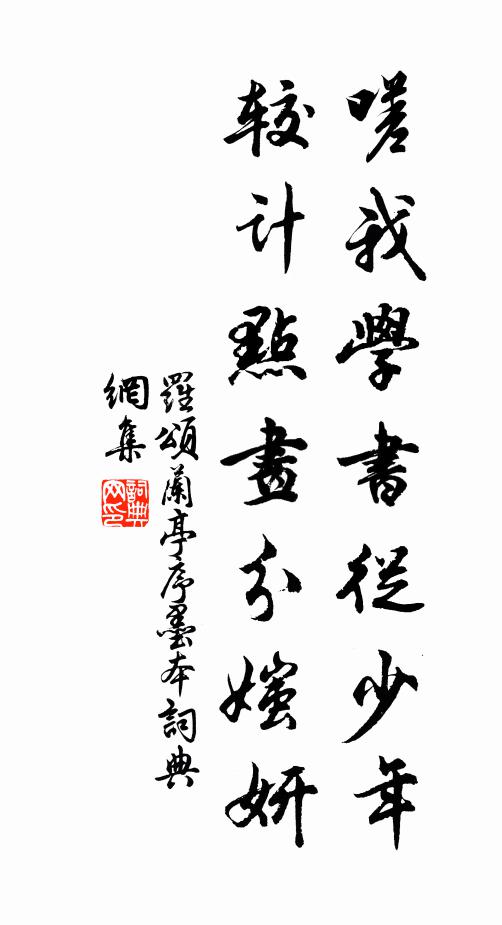 嗟我學書從少年
較计點畫分媸妍
羅頌蘭亭序墨本詞典
網集
詞典
网印